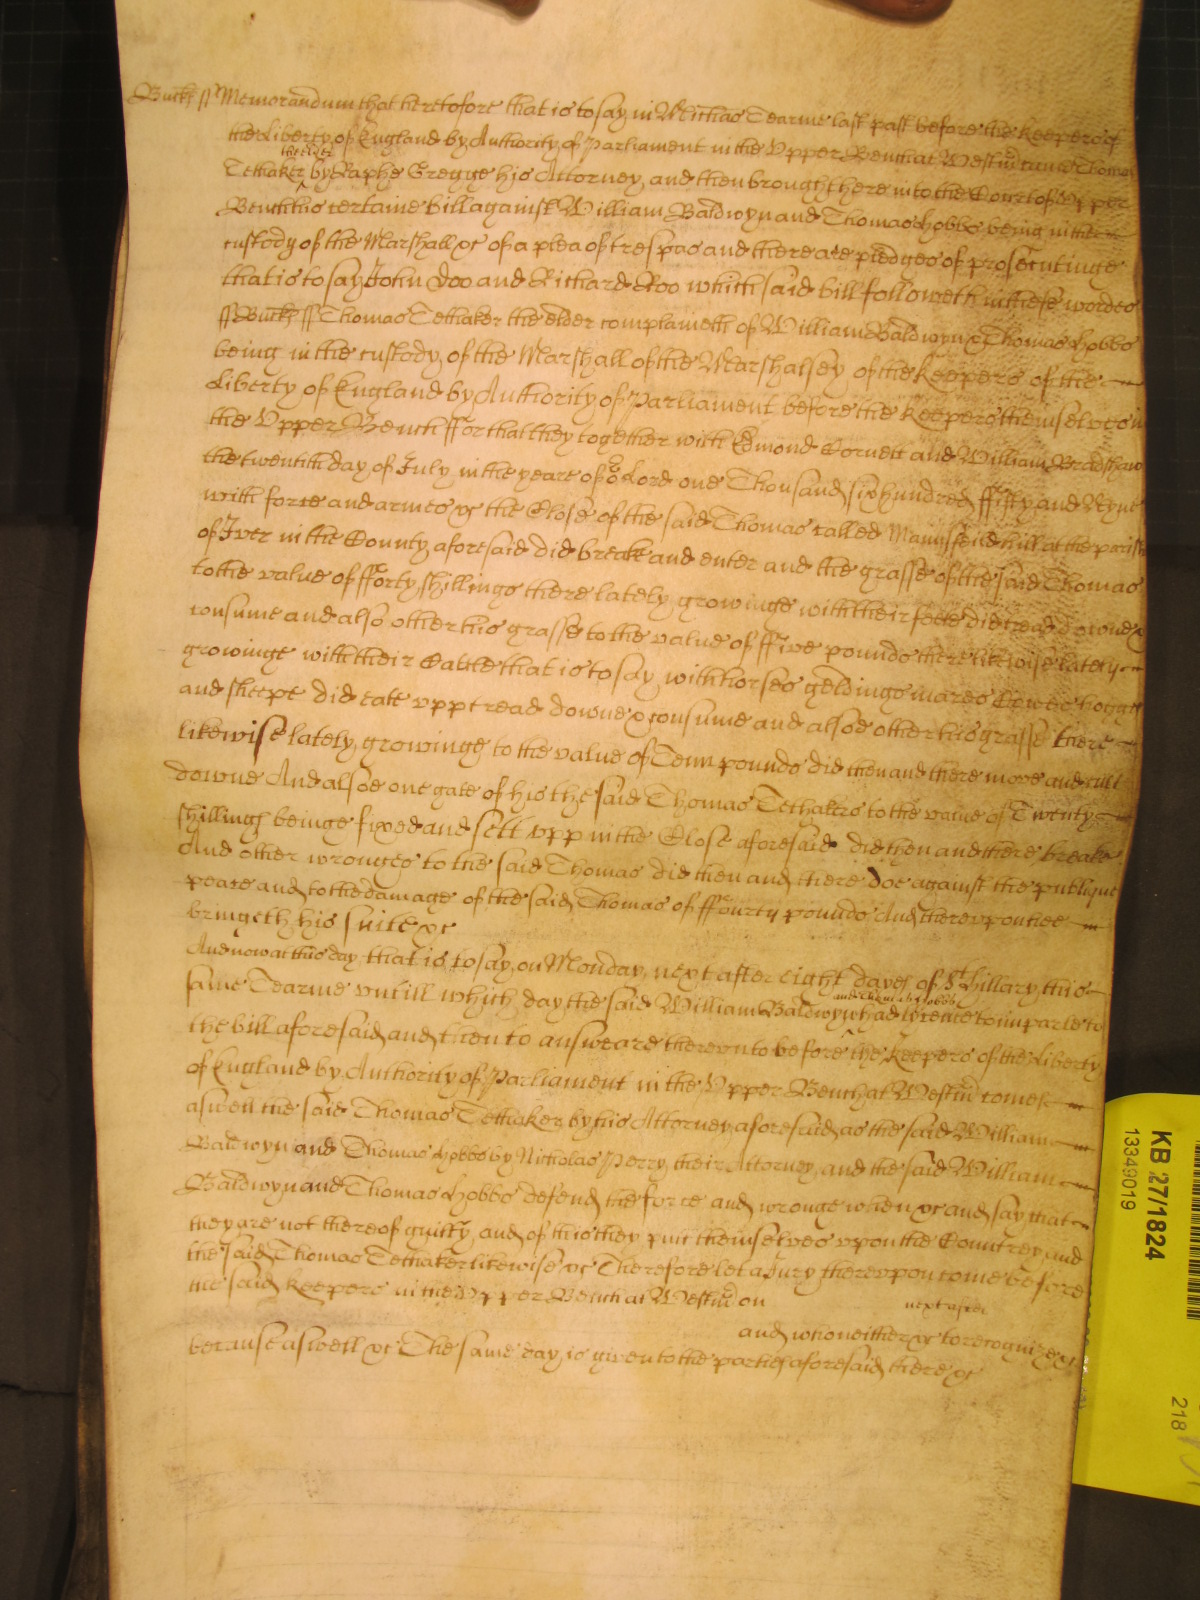 Bucks ss Memorandum that heretofore that is to say in Michas Tearme last past before the Keepers of
the Liberty of England by Authority of Parliament in the Upper Bench at Westm came Thomas
the elder
Tethaker by Raphe Gregge his Attorney and then brought here into the Court of Upper
Bench his certaine bill against William Baldwyn and Thomas Hobbs being in the
custody of the Marshall &c of a plea of trespas and there are pledges of prosecutinge
that is to say John Doo and Richard Roo which said bill followeth in these wordes
ss Bucks ss Thomas Tethaker the elder complaineth of William Baldwyn & Thomas Hobbs
being in the custody of the Marshall of the Marshalsey of the Keepers of the
Liberty of England by Authority of Parliament before the Keepers themselves in
the Upper Bench ffor that they together with Edmond Cornett and William Bradshaw
the twentith day of July in the yeare of or Lord one Thousand six hundred ffifty and Nyne
with force and armes &c the Close of the said Thomas called at the parish
of Iver in the County aforesaid did breake and enter and the grasse of the said Thomas
to the value of fforty shillings there lately growinge with their feete did tread downe &
consume and also other his grasse to the value of ffive pounds there likewise lately
growinge with their Cattle that is to say with horses geldings mares Cowes hoggs
and sheepe did eate upp tread downe & consume and alsoe other his grasse there
likewise lately growinge to the value of Tenn pounds did then and there mowe and cutt
downe And alsoe one gate of his the said Thomas Tethakers to the value of Twenty
shillings beinge fixed and sett upp in the Close aforesaid did then and there breake
And other wronges to the said Thomas did then and there doe against the publique
peace and to the damage of the said Thomas of ffourty pounds And thereupon hee
bringeth his suite &c
And now at this day that is to say on Monday next after eight dayes of St Hillary this
same Tearme untill which day the said William Baldwyn had lycence to imparle to
and Thomas Hobbs
the bill aforesaid and then to answeare thereunto before the Keepers of the Liberty
of England by Authority of Parliament in the Upper Bench at Westm comes
aswell the said Thomas Tethaker by his Attorney aforesaid as the said William
Baldwyn and Thomas Hobbs by Nicholas Perry their Attorney and the said William
Baldwyn and Thomas Hobbs defend the force and wronge when &c and say that
they are not thereof guilty and of this they putt themselves upon the Countrey and
the said Thomas Tethaker likewise &c Therefore let a Jury thereupon come before
the said Keepers in the Upper Bench at Westm on next after
and who neither &c to recognize &c
because aswell &c The same day is given to the parties aforesaid there &c
KB 27/1824
13349019
218